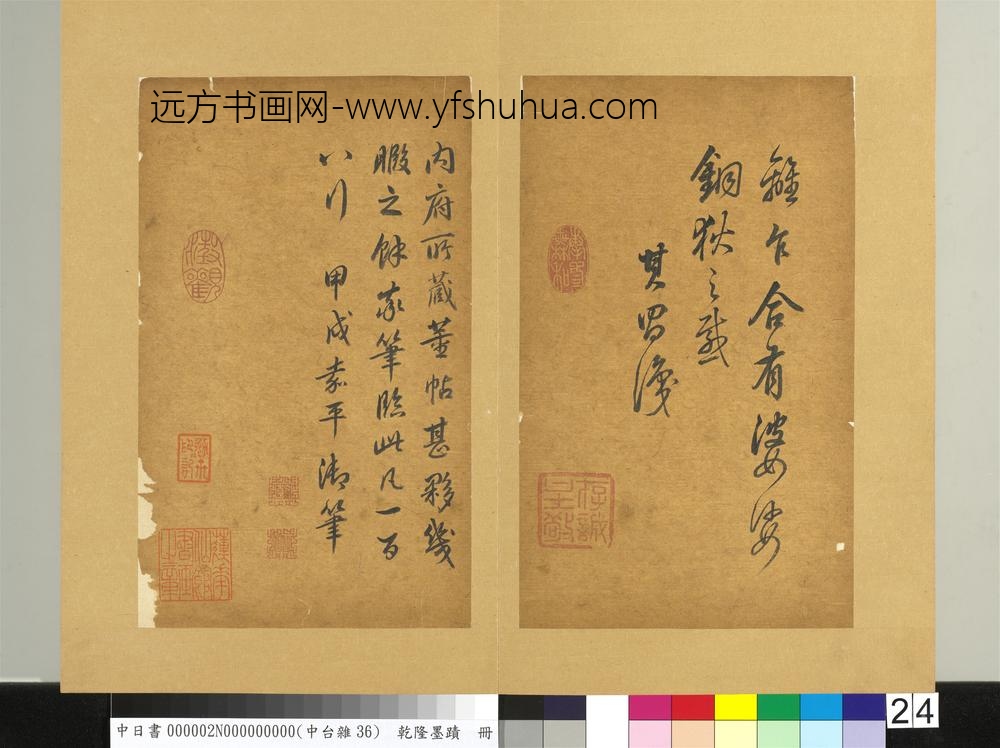 远方书画网-www.yfshuhua.com
離乍合有婆娑
銅狄之感
其昌識
存誠
主敬
内府所藏董帖甚夥幾
暇之餘索筆臨此凡一百
八行 甲戌嘉平御筆
澂觀
中日書 000002N000000000(中台雜 36) 乾隆墨蹟 冊
24